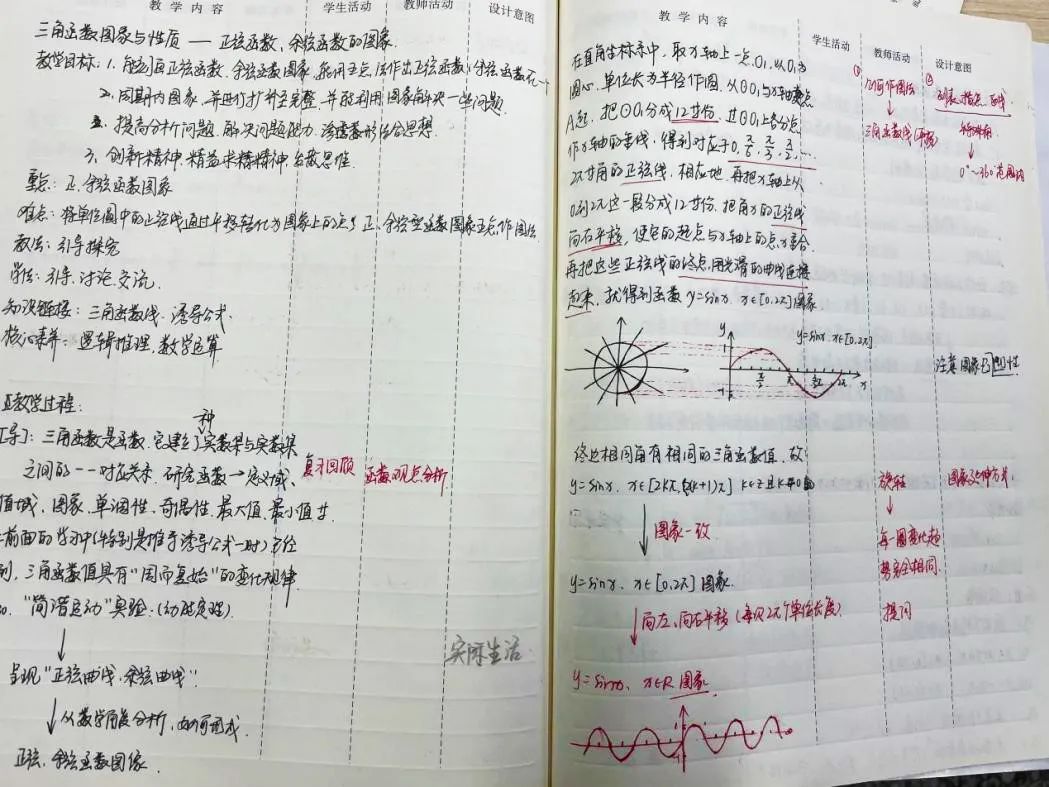 教学内容 学生活动 教师活动 设计意图
三角函数图象与性质 —— 正弦函数,余弦函数的图象.
教学目标: 1. 能画正弦函数、余弦函数图象,能用五点法作出正弦函数,余弦函数在一个
2. 周期内图象,并进行扩补至完整,并能利用图象解决一些问题
提高分析问题、解决问题能力,渗透数形结合思想.
3. 创新精神,精益求精精神,发散思维.
重点: 正、余弦函数图象
难点: 将单位圆中的正弦线通过平移转化为图象上的点; 正、余弦型函数图象五点作图法.
教法: 引导探究
学法: 引导、讨论、交流.
知识链接: 三角函数线、诱导公式.
核心素养: 逻辑推理,数学运算
教学过程:
[导]: 三角函数是函数,它建立了实数集与实数集
种
之间的一一对应关系. 研究函数→定义域、 复习回顾 函数观点分析
值域、图象、单调性、奇偶性、最大值、最小值等
前面的学习中(特别是推导诱导公式一时)已经
三角函数值具有“周而复始”的变化规律.
“简谐运动”实验:
实际生活.
呈现“正弦曲线、余弦曲线”
从数学角度分析,如何画成.
正弦、余弦函数图像.
教学内容 学生活动 教师活动 设计意图
在直角坐标系中,取x轴上一点O₁,以O₁为 ① ②
圆心,单位长为半径作圆.从⊙O₁与x轴交点 几何作图法 列表、描点、连线
A起,把⊙O₁分成12等份.过⊙O₁上各分点
作x轴的垂线,得到对应于0, π/6, π/3, π/2, … 三角函数线(平移) 特殊角
2π等角的正弦线,相应地,再把x轴上从 0°~360°范围内
0到2π这一段分成12等份.把角x的正弦线
向右平移,使它的起点与x轴上的点x重合.
再把这些正弦线的终点用光滑的曲线连接
起来,就得到函数y=sinx, x∈[0,2π]图象
y=sinx x∈[0,2π]
y 1 -1 π/2 π 3π/2 2π x
注意图象凹凸性.
终边相同角有相同的三角函数值,故
y=sinx, x∈[2kπ, 2(k+1)π] k∈Z且k≠0 旋转 图象延伸方式.
图象一致 每一圈变化趋
势完全相同.
y=sinx, x∈[0,2π]图象.
向左、向右平移(每次2π个单位长度) 提问
y=sinx, x∈R图象.